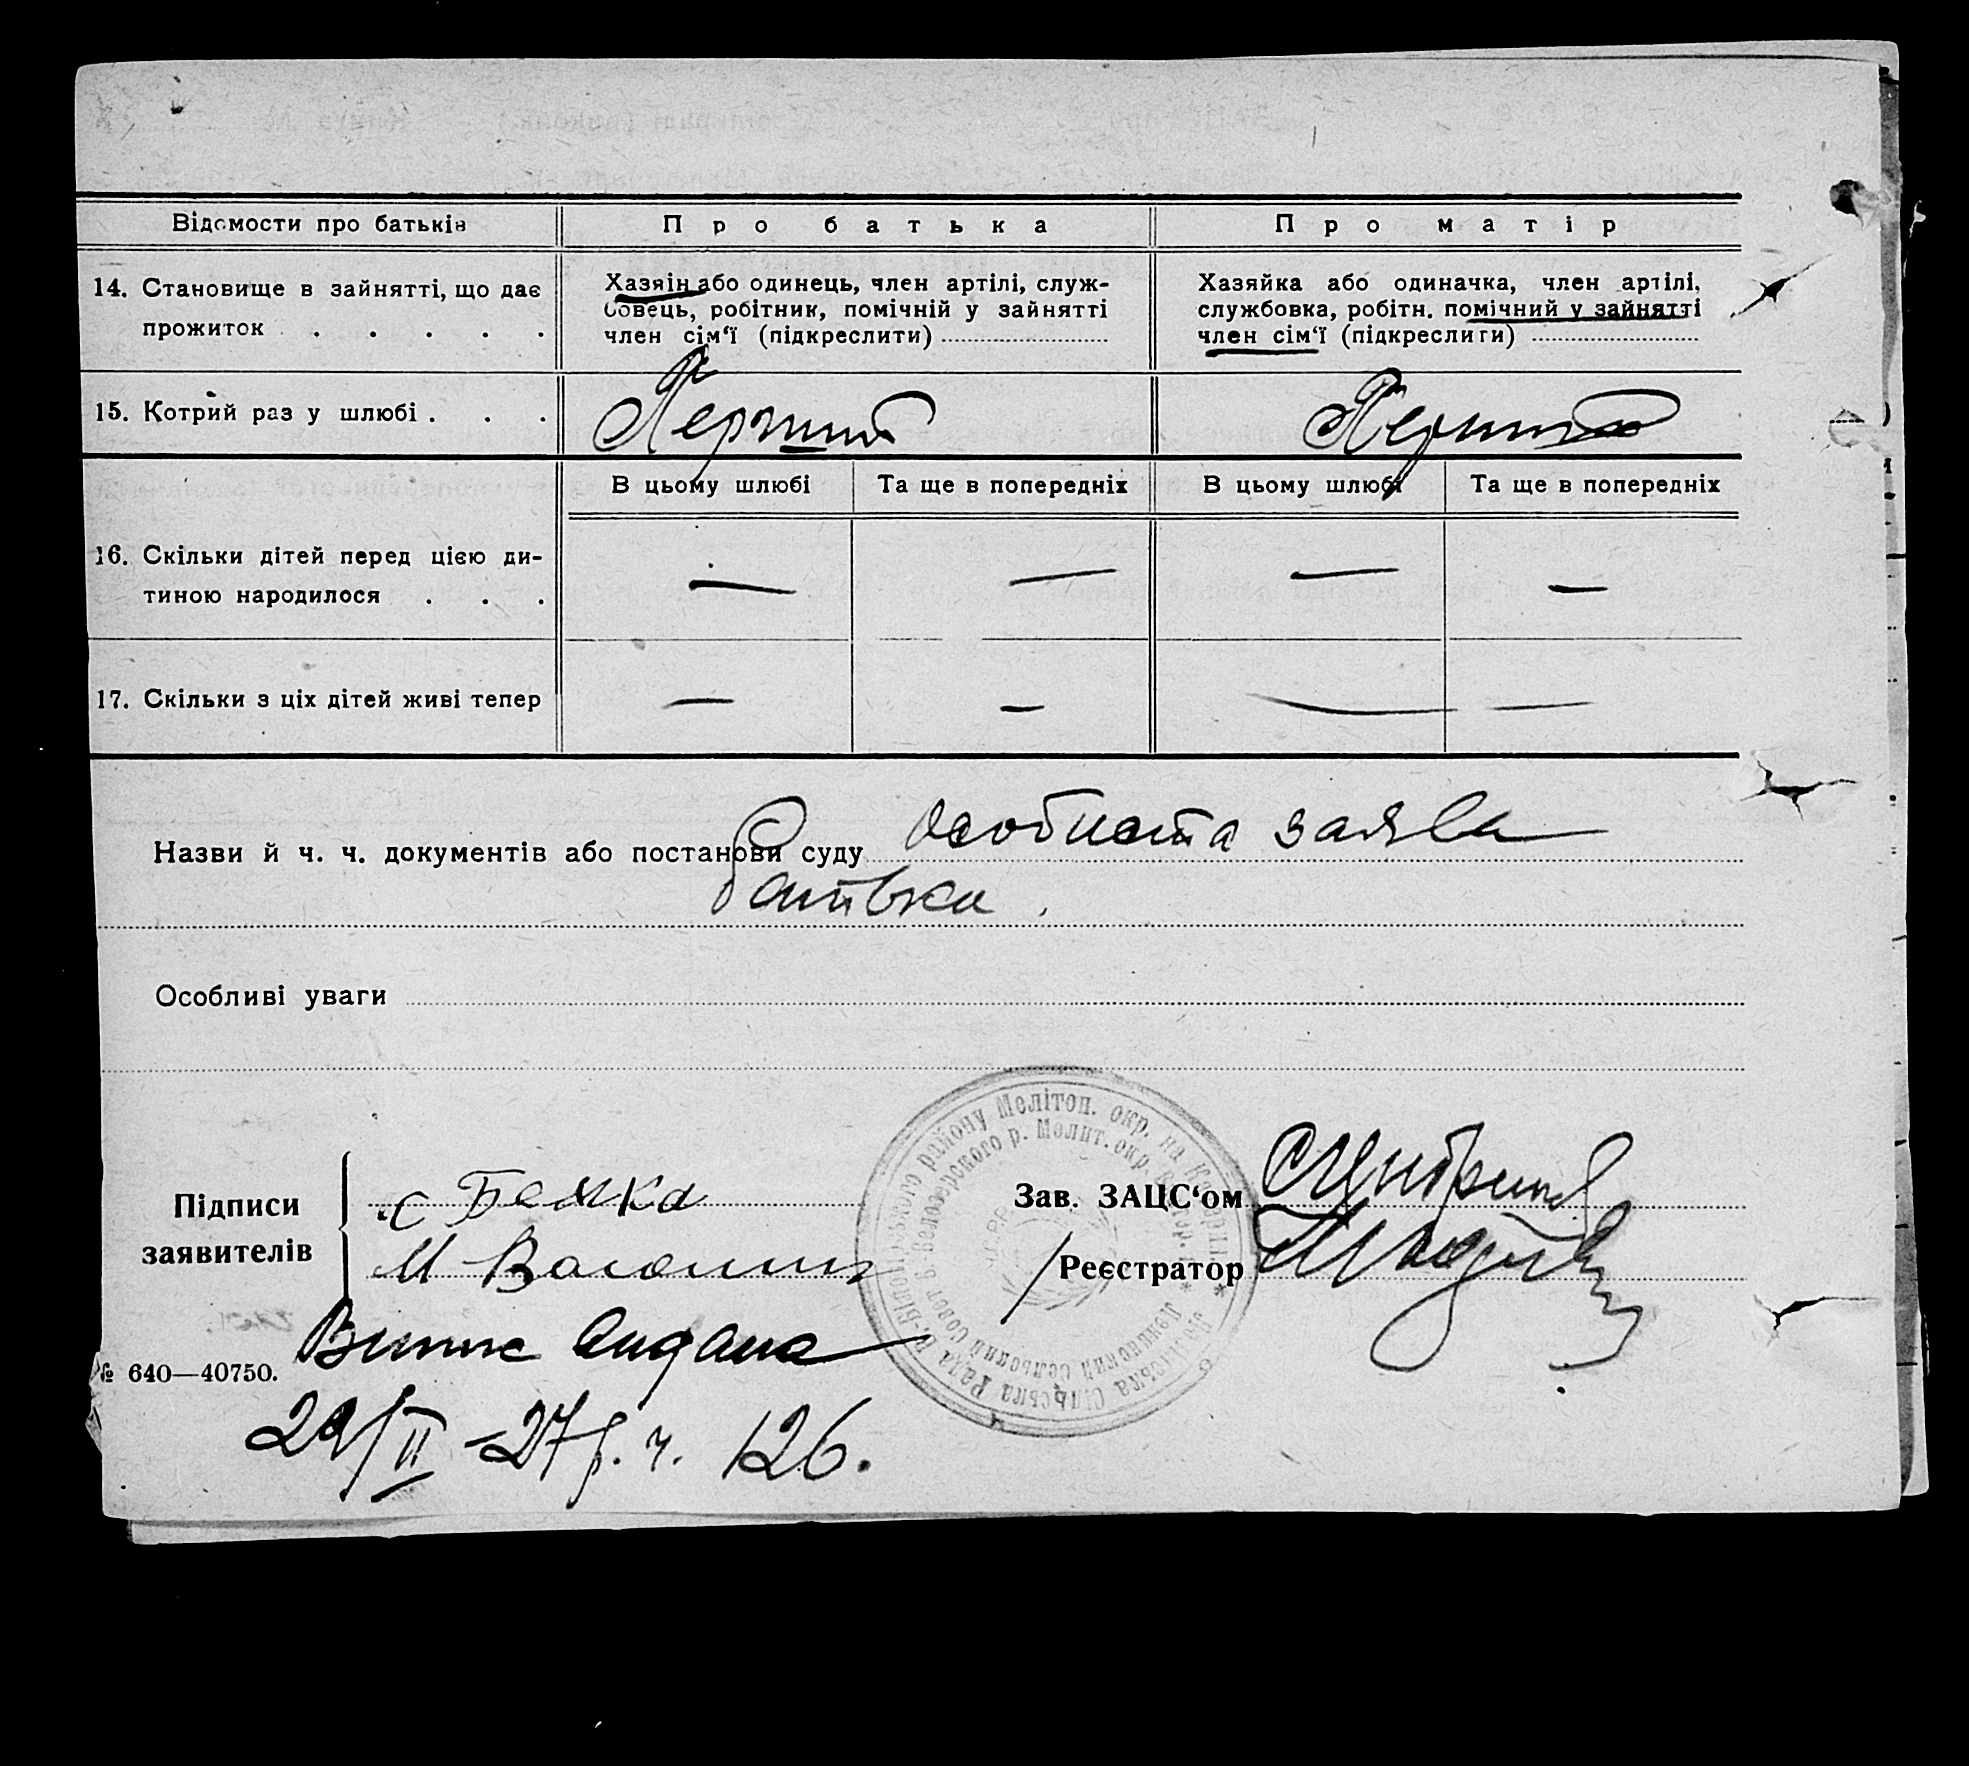 Відомости про батьків
Про батька
Про матір
14. Становище в зайнятті, що дає
прожиток . . . . .
Хазяін або одинець, член артілі, служ-
бовець, робітник, помічній у зайнятті
член сім‘ї (підкреслити)
Хазяйка або одиначка, член артілі,
службовка, робітн. помічний у зайнятті
член сім‘ї (підкреслити)
15. Котрий раз у шлюбі . . .
Перший
Перший
В цьому шлюбі
Та ще в попередніх
В цьому шлюбі
Та ще в попередніх
16. Скільки дітей перед цією ди-
тиною народилося . . .
— — — —
17. Скільки з ціх дітей живі тепер
— — — —
Назви й ч. ч. документів або постанови суду особиста заява
батька.
Особливі уваги
Підписи
заявителів
М
Зав. ЗАЦС‘ом
/Реєстратор
району Мелітоп. окр. на Катерин.
Белозерского р. Мелит. окр.
Сільська Рада
сельский Совет
Випис видана
№ 640—40750.
29/II —27 р. ч. 126.